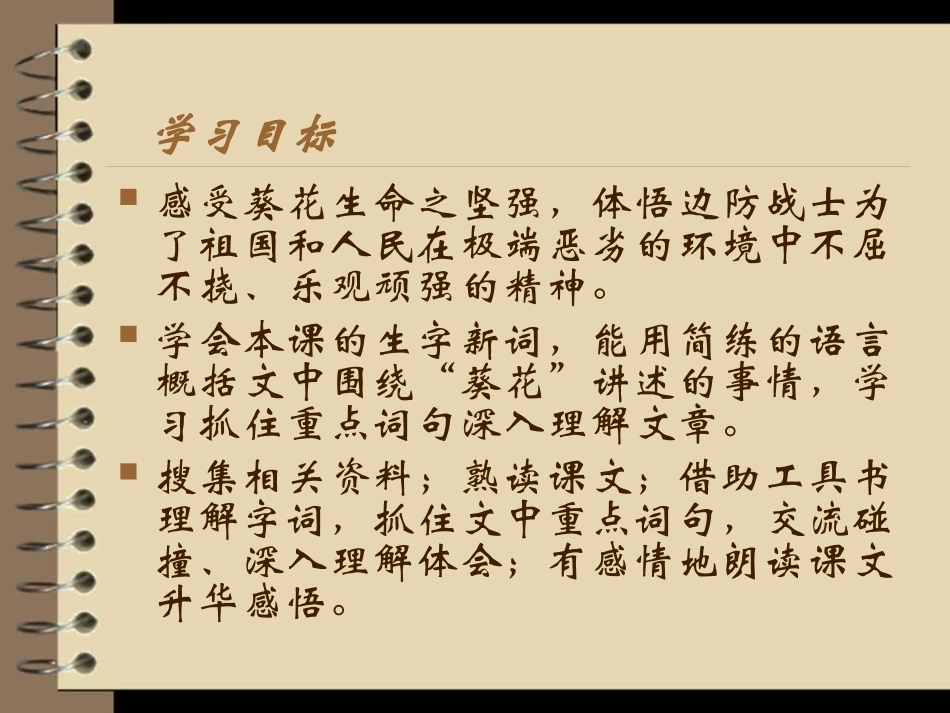 学习目标
感受葵花生命之坚强，体悟边防战士为
了祖国和人民在极端恶劣的环境中不屈
不挠、乐观顽强的精神。
学会本课的生字新词，能用简练的语言
概括文中围绕“葵花”讲述的事情，学
习抓住重点词句深入理解文章。
搜集相关资料；熟读课文；借助工具书
理解字词，抓住文中重点词句，交流碰
撞、深入理解体会；有感情地朗读课文
升华感悟。